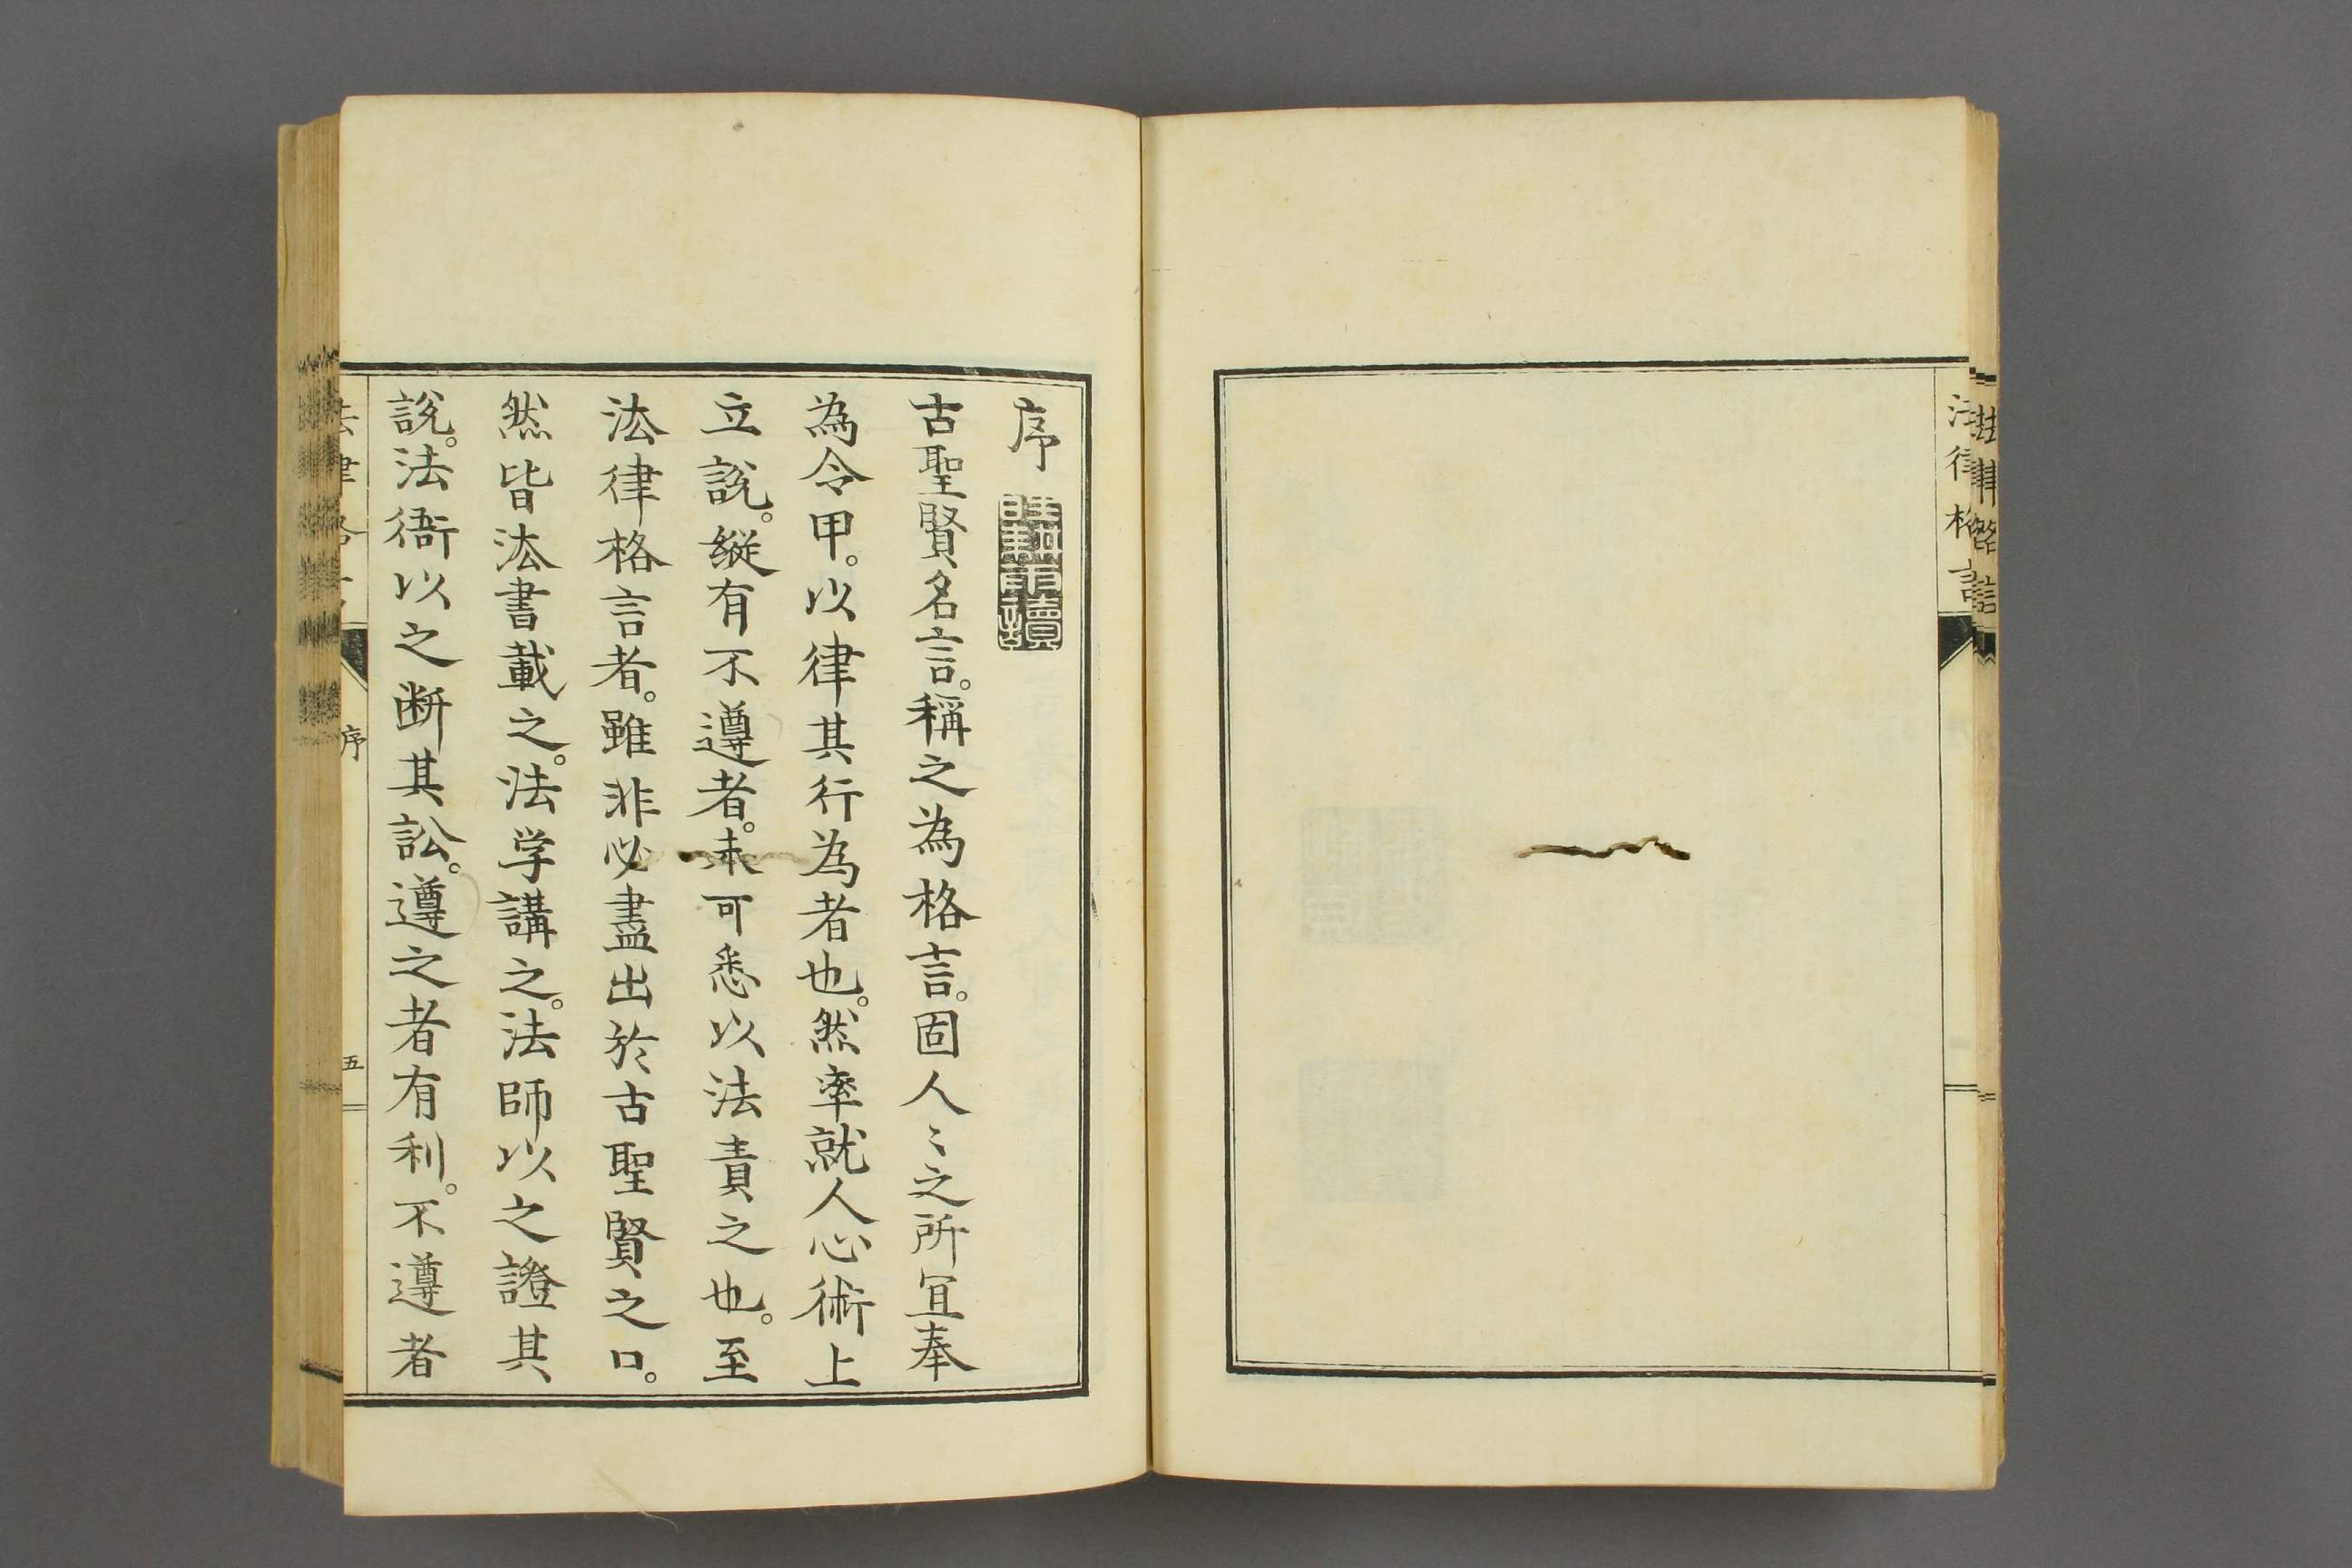 法律格言
序
晴耕雨讀
古聖賢名言。稱之為格言。固人〻之所宜奉
為令甲。以律其行為者也。然率就人心術上
立說。縱有不遵者。未可悉以法責之也。至
法律格言者。雖非必盡出於古聖賢之口。
然皆法書載之。法学講之。法師以之證其
說。法衙以之断其訟。遵之者有利。不遵者
序
五